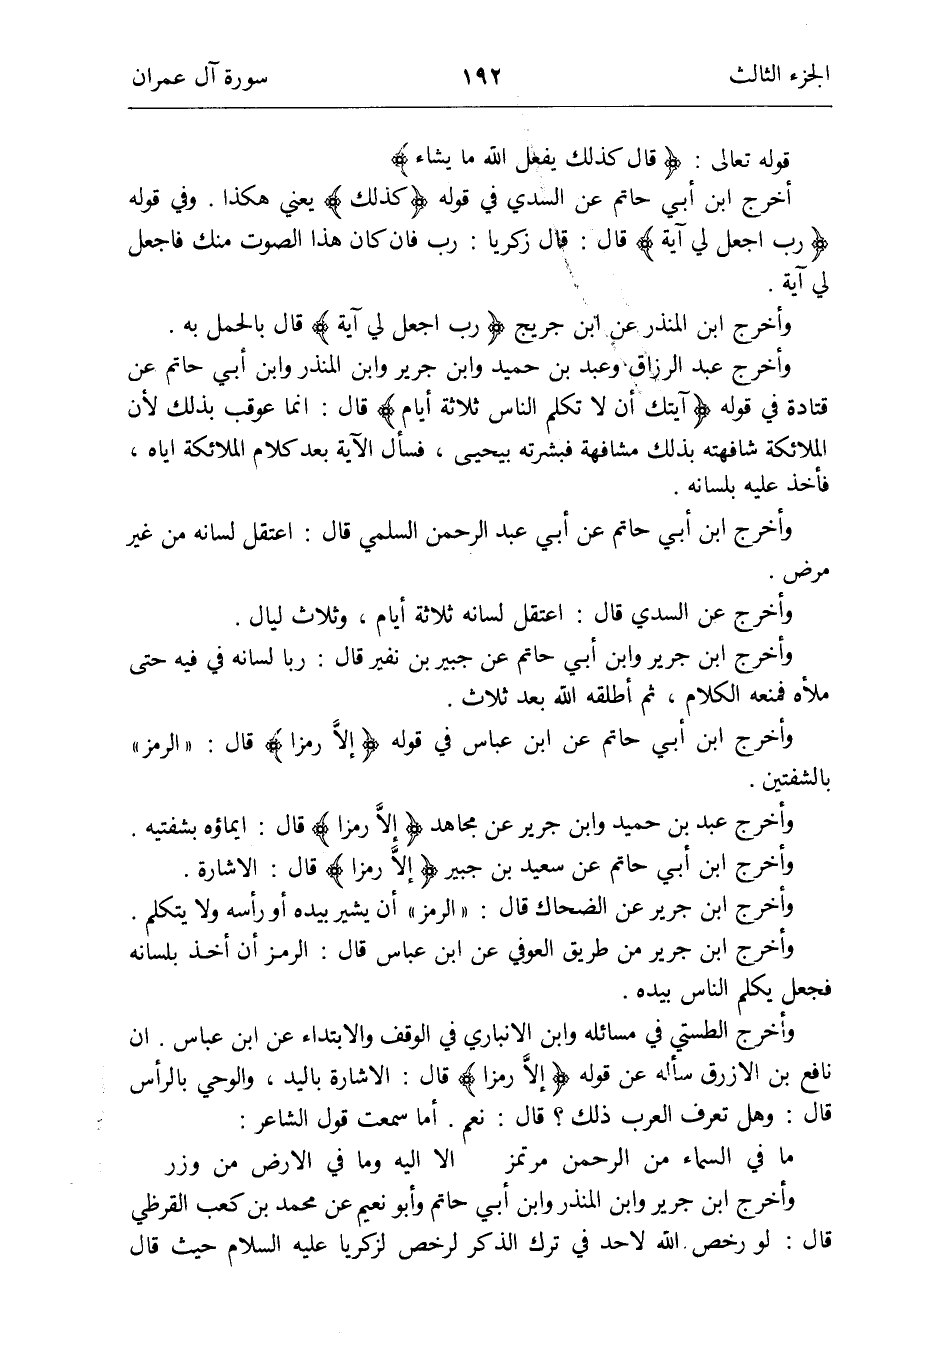 الجزء الثالث ١٩٢ سورة آل عمران
قوله تعالى : ﴿ قال كذلك يفعل الله ما يشاء ﴾
أخرج ابن أبي حاتم عن السدي في قوله ﴿ كذلك ﴾ يعني هكذا . وفي قوله
﴿ رب اجعل لي آية ﴾ قال : قال زكريا : رب فان كان هذا الصوت منك فاجعل
لي آية .
وأخرج ابن المنذر عن ابن جريج ﴿ رب اجعل لي آية ﴾ قال بالحمل به .
وأخرج عبد الرزاق وعبد بن حميد وابن جرير وابن المنذر وابن أبي حاتم عن
قتادة في قوله ﴿ آيتك أن لا تكلم الناس ثلاثة أيام ﴾ قال : انما عوقب بذلك لأن
الملائكة شافهته بذلك مشافهة فبشرته بيحيى ، فسأل الآية بعد كلام الملائكة اياه ،
فأخذ عليه بلسانه .
وأخرج ابن أبي حاتم عن أبي عبد الرحمن السلمي قال : اعتقل لسانه من غير
مرض .
وأخرج عن السدي قال : اعتقل لسانه ثلاثة أيام ، وثلاث ليال .
وأخرج ابن جرير وابن أبي حاتم عن جبير بن نفير قال : ربا لسانه في فيه حتى
ملأه فمنعه الكلام ، ثم أطلقه الله بعد ثلاث .
وأخرج ابن أبي حاتم عن ابن عباس في قوله ﴿ إلاَّ رمزا ﴾ قال : « الرمز »
بالشفتين .
وأخرج عبد بن حميد وابن جرير عن مجاهد ﴿ إلاَّ رمزا ﴾ قال : ايماؤه بشفتيه .
وأخرج ابن أبي حاتم عن سعيد بن جبير ﴿ إلاَّ رمزا ﴾ قال : الاشارة .
وأخرج ابن جرير عن الضحاك قال : « الرمز » أن يشير بيده أو رأسه ولا يتكلم .
وأخرج ابن جرير من طريق العوفي عن ابن عباس قال : الرمز أن أخذ بلسانه
فجعل يكلم الناس بيده .
وأخرج الطستي في مسائله وابن الانباري في الوقف والابتداء عن ابن عباس . ان
نافع بن الازرق سأله عن قوله ﴿ إلاَّ رمزا ﴾ قال : الاشارة باليد ، والوحي بالرأس
قال : وهل تعرف العرب ذلك ؟ قال : نعم . أما سمعت قول الشاعر :
ما في السماء من الرحمن مرتمز الا اليه وما في الارض من وزر
وأخرج ابن جرير وابن المنذر وابن أبي حاتم وأبو نعيم عن محمد بن كعب القرظي
قال : لو رخص الله لاحد في ترك الذكر لرخص لزكريا عليه السلام حيث قال